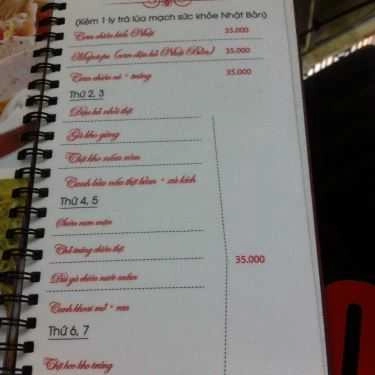 (Kèm 1 ly trà lúa mạch sức khỏe Nhật Bản)
Cơm chiên kiểu Nhật 35.000
Mapotopu (cơm đậu hủ Nhật Bản) 35.000
Cơm chiên cá + trứng 35.000
Thứ 2, 3
Đậu hủ nhồi thịt
Gà kho gừng
Thịt kho mắm ruốc
Canh bầu nấu thịt bằm + xúc xích
Thứ 4, 5
Sườn ram mặn
Chả trứng chiên thịt
Đùi gà chiên nước mắm
35.000
Canh khoai mỡ + rau
Thứ 6, 7
Thịt heo kho trứng